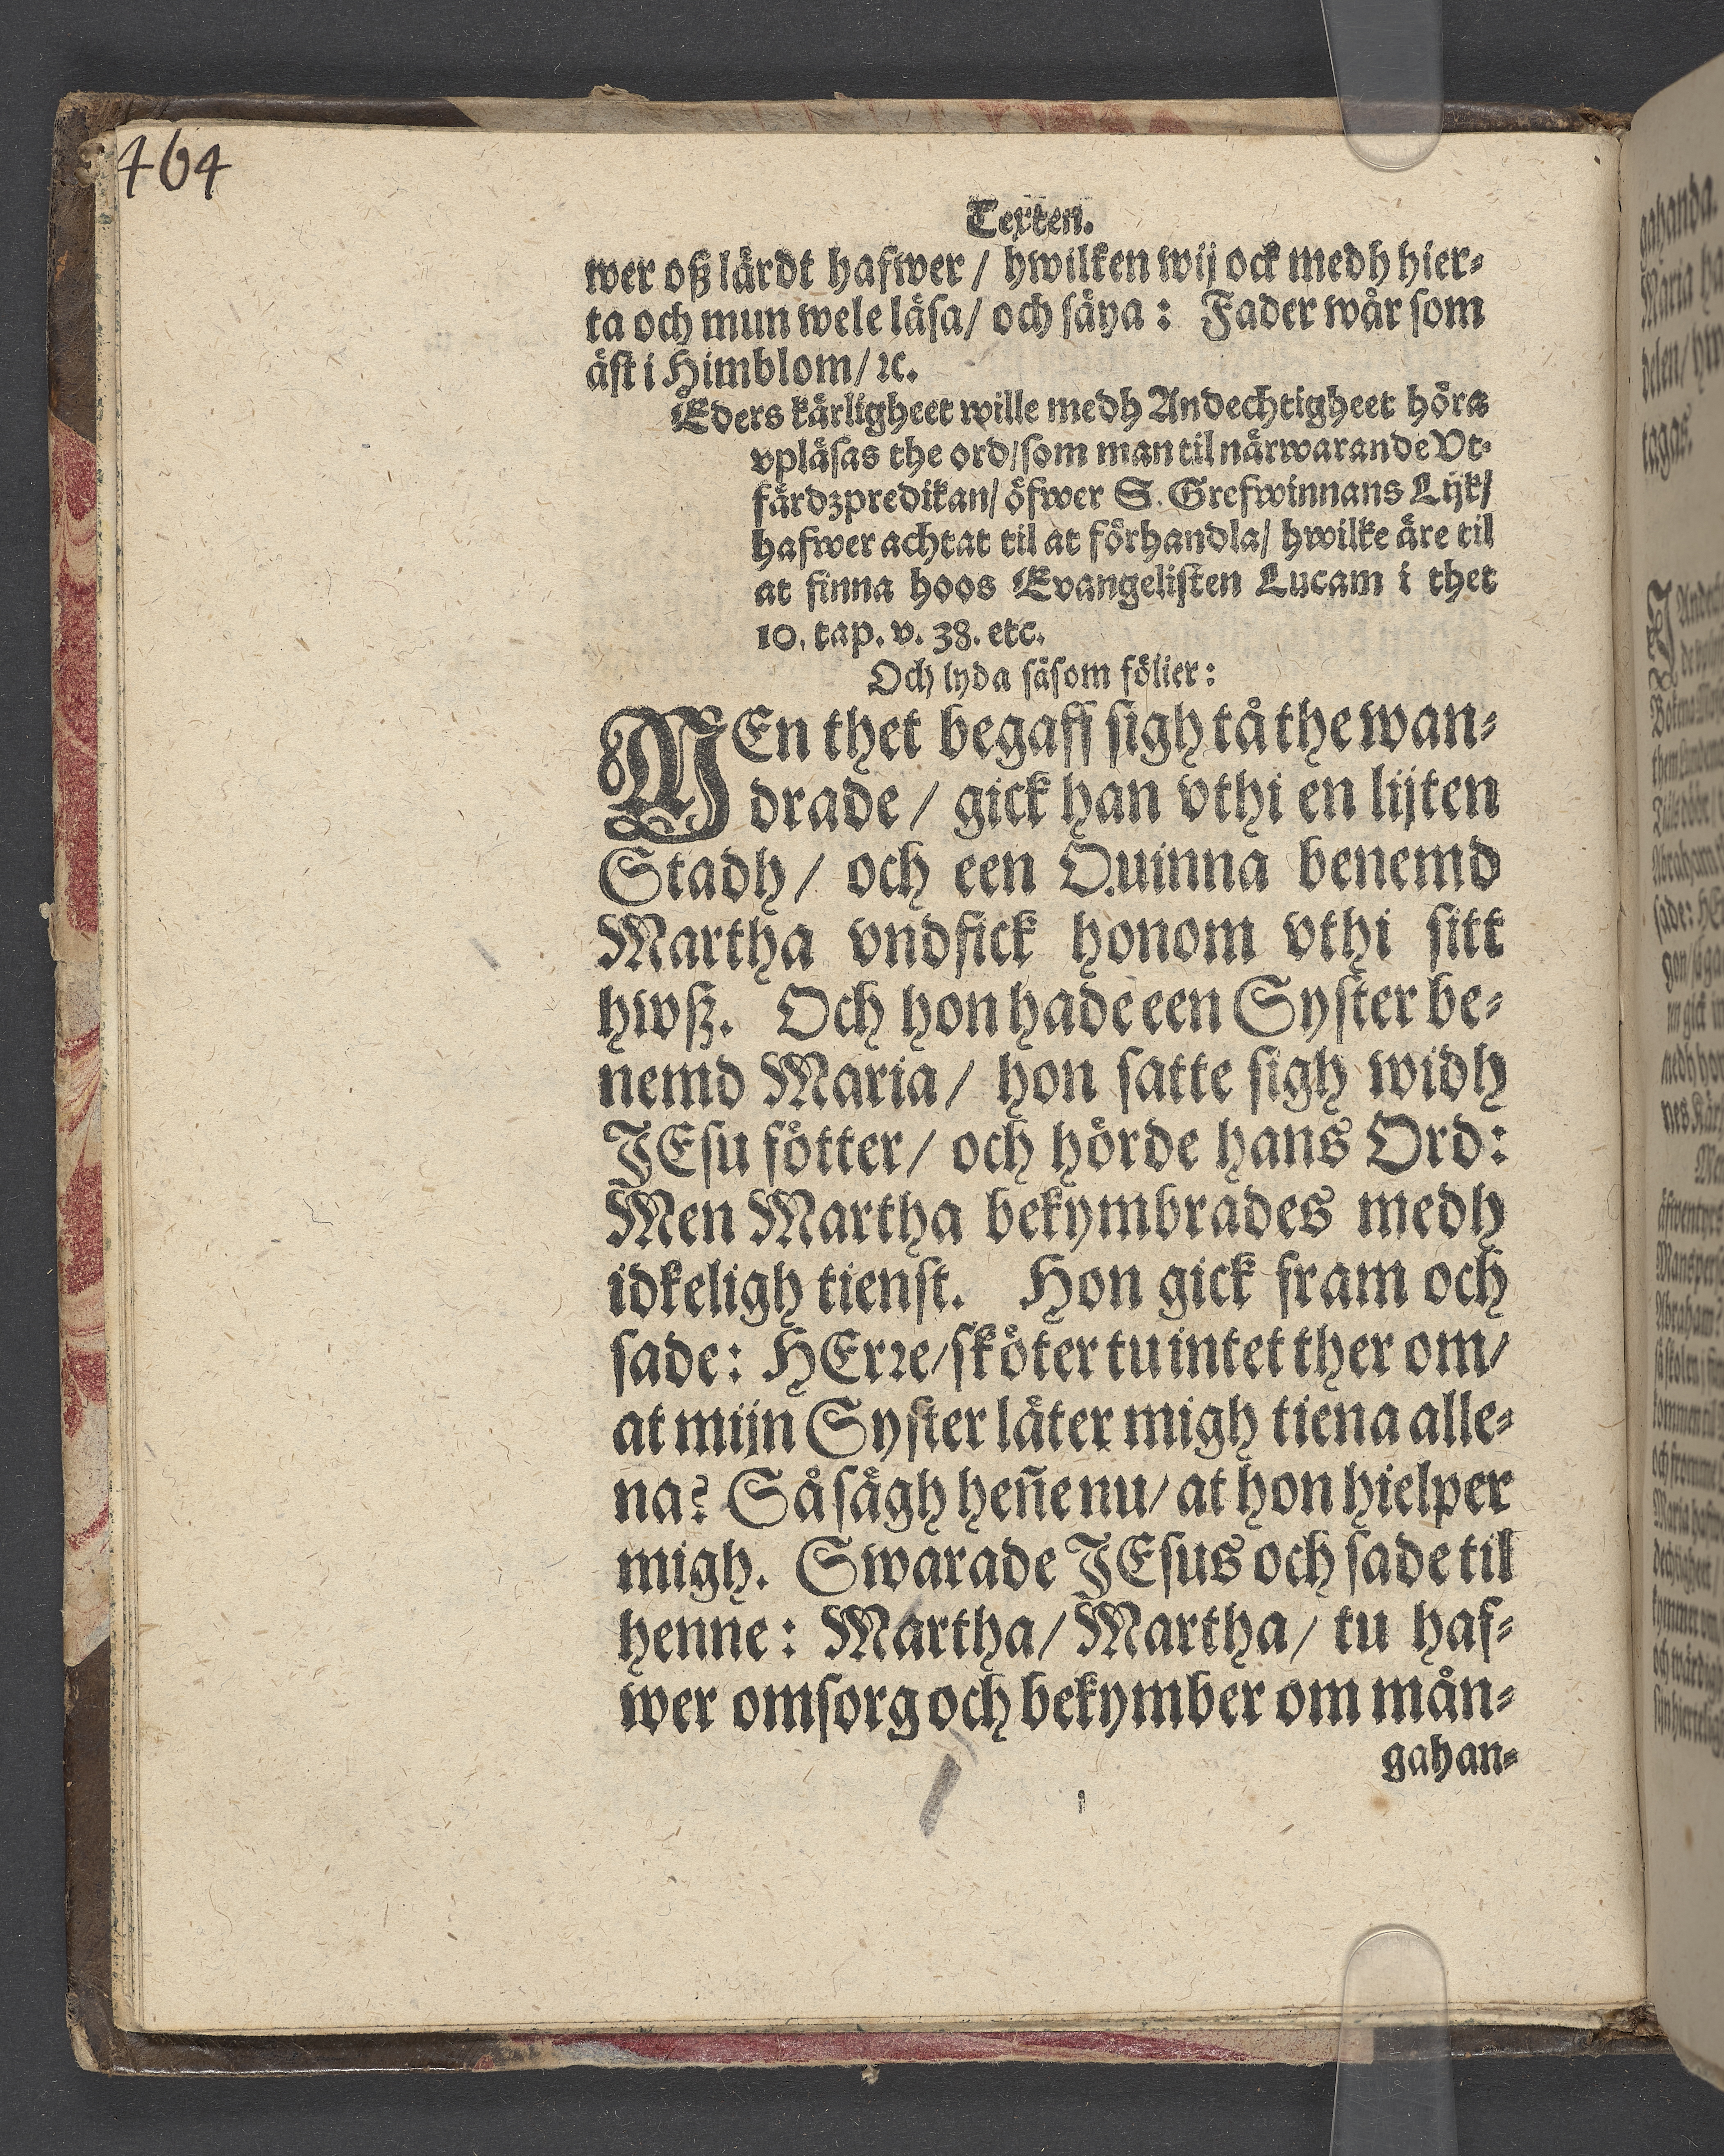 464
Texten.
wer oß lärdt hafwer / hwilken wij ock medh hier⸗
ta och mun wele läsa/ och säya : Fader wår som
äst i Himblom/ ꝛc.
Eders kärligheet wille medh Andechtigheet höra
vpläsas the ord/som man til närwarande Vt⸗
färdzpredikan/ öfwer S. Grefwinnans Lijk/
hafwer achtat til at förhandla/ hwilke äre til
at finna hoos Evangelisten Lucam i thet
10. cap. v. 38. etc.
Och lyda såsom fölier:
MEn thet begaff sigh tå the wan⸗
drade / gick han vthi en lijten
Stadh / och een Quinna benemd
Martha vndfick honom vthi sitt
hwß. Och hon hade een Syster be⸗
nemd Maria / hon satte sigh widh
JEsu fötter / och hörde hans Ord:
Men Martha bekymbrades medh
idkeligh tienst. Hon gick fram och
sade: HErꝛe/sköter tu intet ther om/
at mijn Syster låter migh tiena alle⸗
na? Så sägh heñe nu/ at hon hielper
migh. Swarade JEsus och sade til
henne: Martha/ Martha/ tu haf⸗
wer omsorg och bekymber om mån⸗
gahan⸗
gahanda.
Maria ha
delen/ hw
tagas.